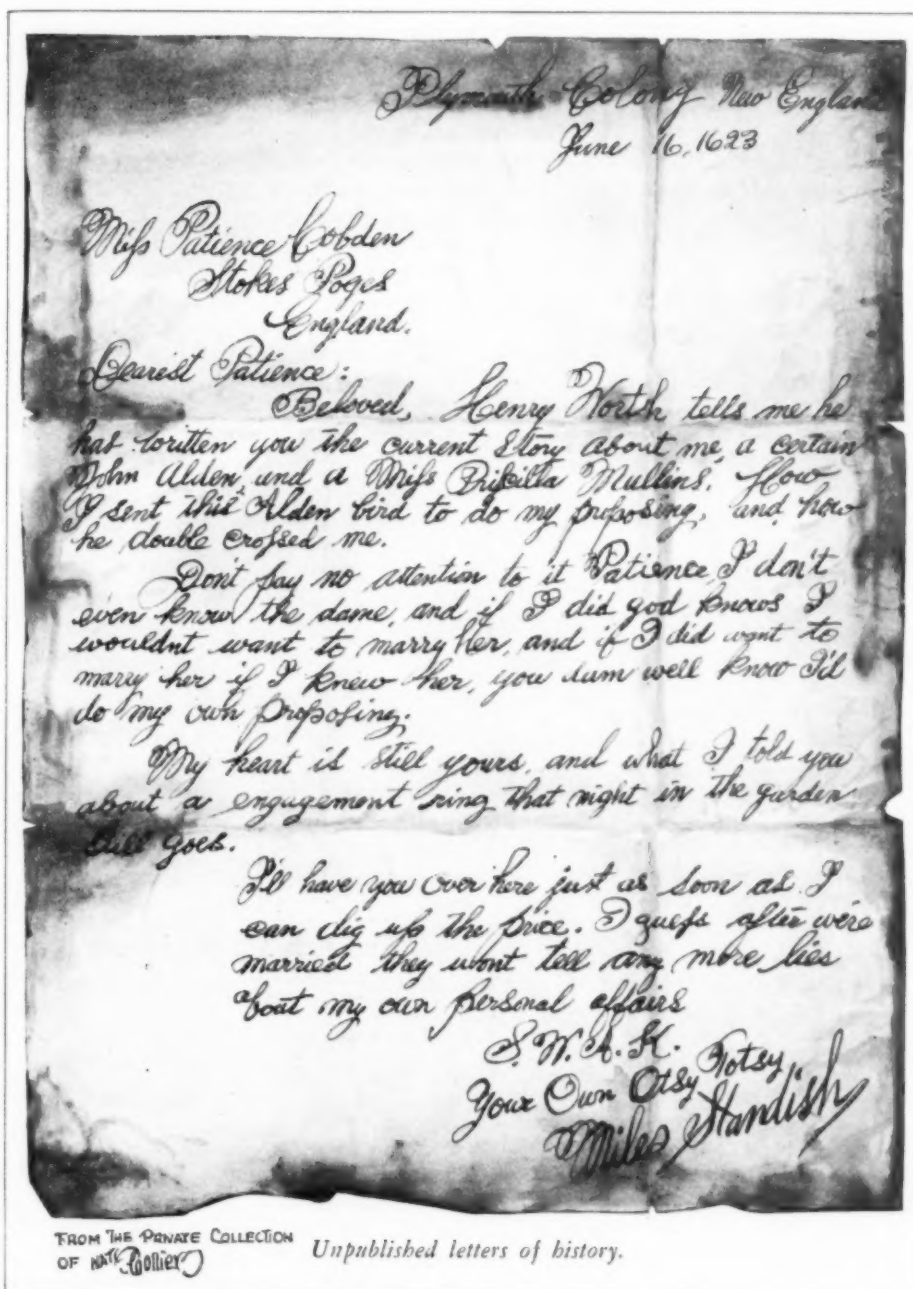 Plymouth Colony New England
June 16, 1623
Miſs Patience Cobden
Stokes Poges
England.
Dearest Patience:
Beloved, Henry Worth tells me he
has written you the current story about me, a certain
John Alden, and a Miſs Priſcilla Mullins. How
I sent this Alden bird to do my proposing, and how
he double croſsed me.
Don't pay no attention to it Patience, I don't
even know the dame, and if I did god knows I
wouldnt want to marry her, and if I did want to
marry her if I knew her, you dum well know I'd
do my own proposing.
My heart is still yours, and what I told you
about a engagement ring that night in the garden
still goes.
I'll have you over here just as soon as I
can dig up the price. I gueſs after we're
married they wont tell any more lies
'bout my own personal affairs
S. W. A. K.
Your Own Otsy Totsy,
Miles Standish
FROM THE PRIVATE COLLECTION
OF NATE Collier
Unpublished letters of history.